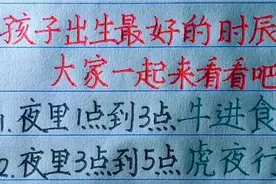 孩子出生最好的时辰
大家一起来看看吧
1.夜里1点到3点牛进食
2.夜里3点到5点虎夜行